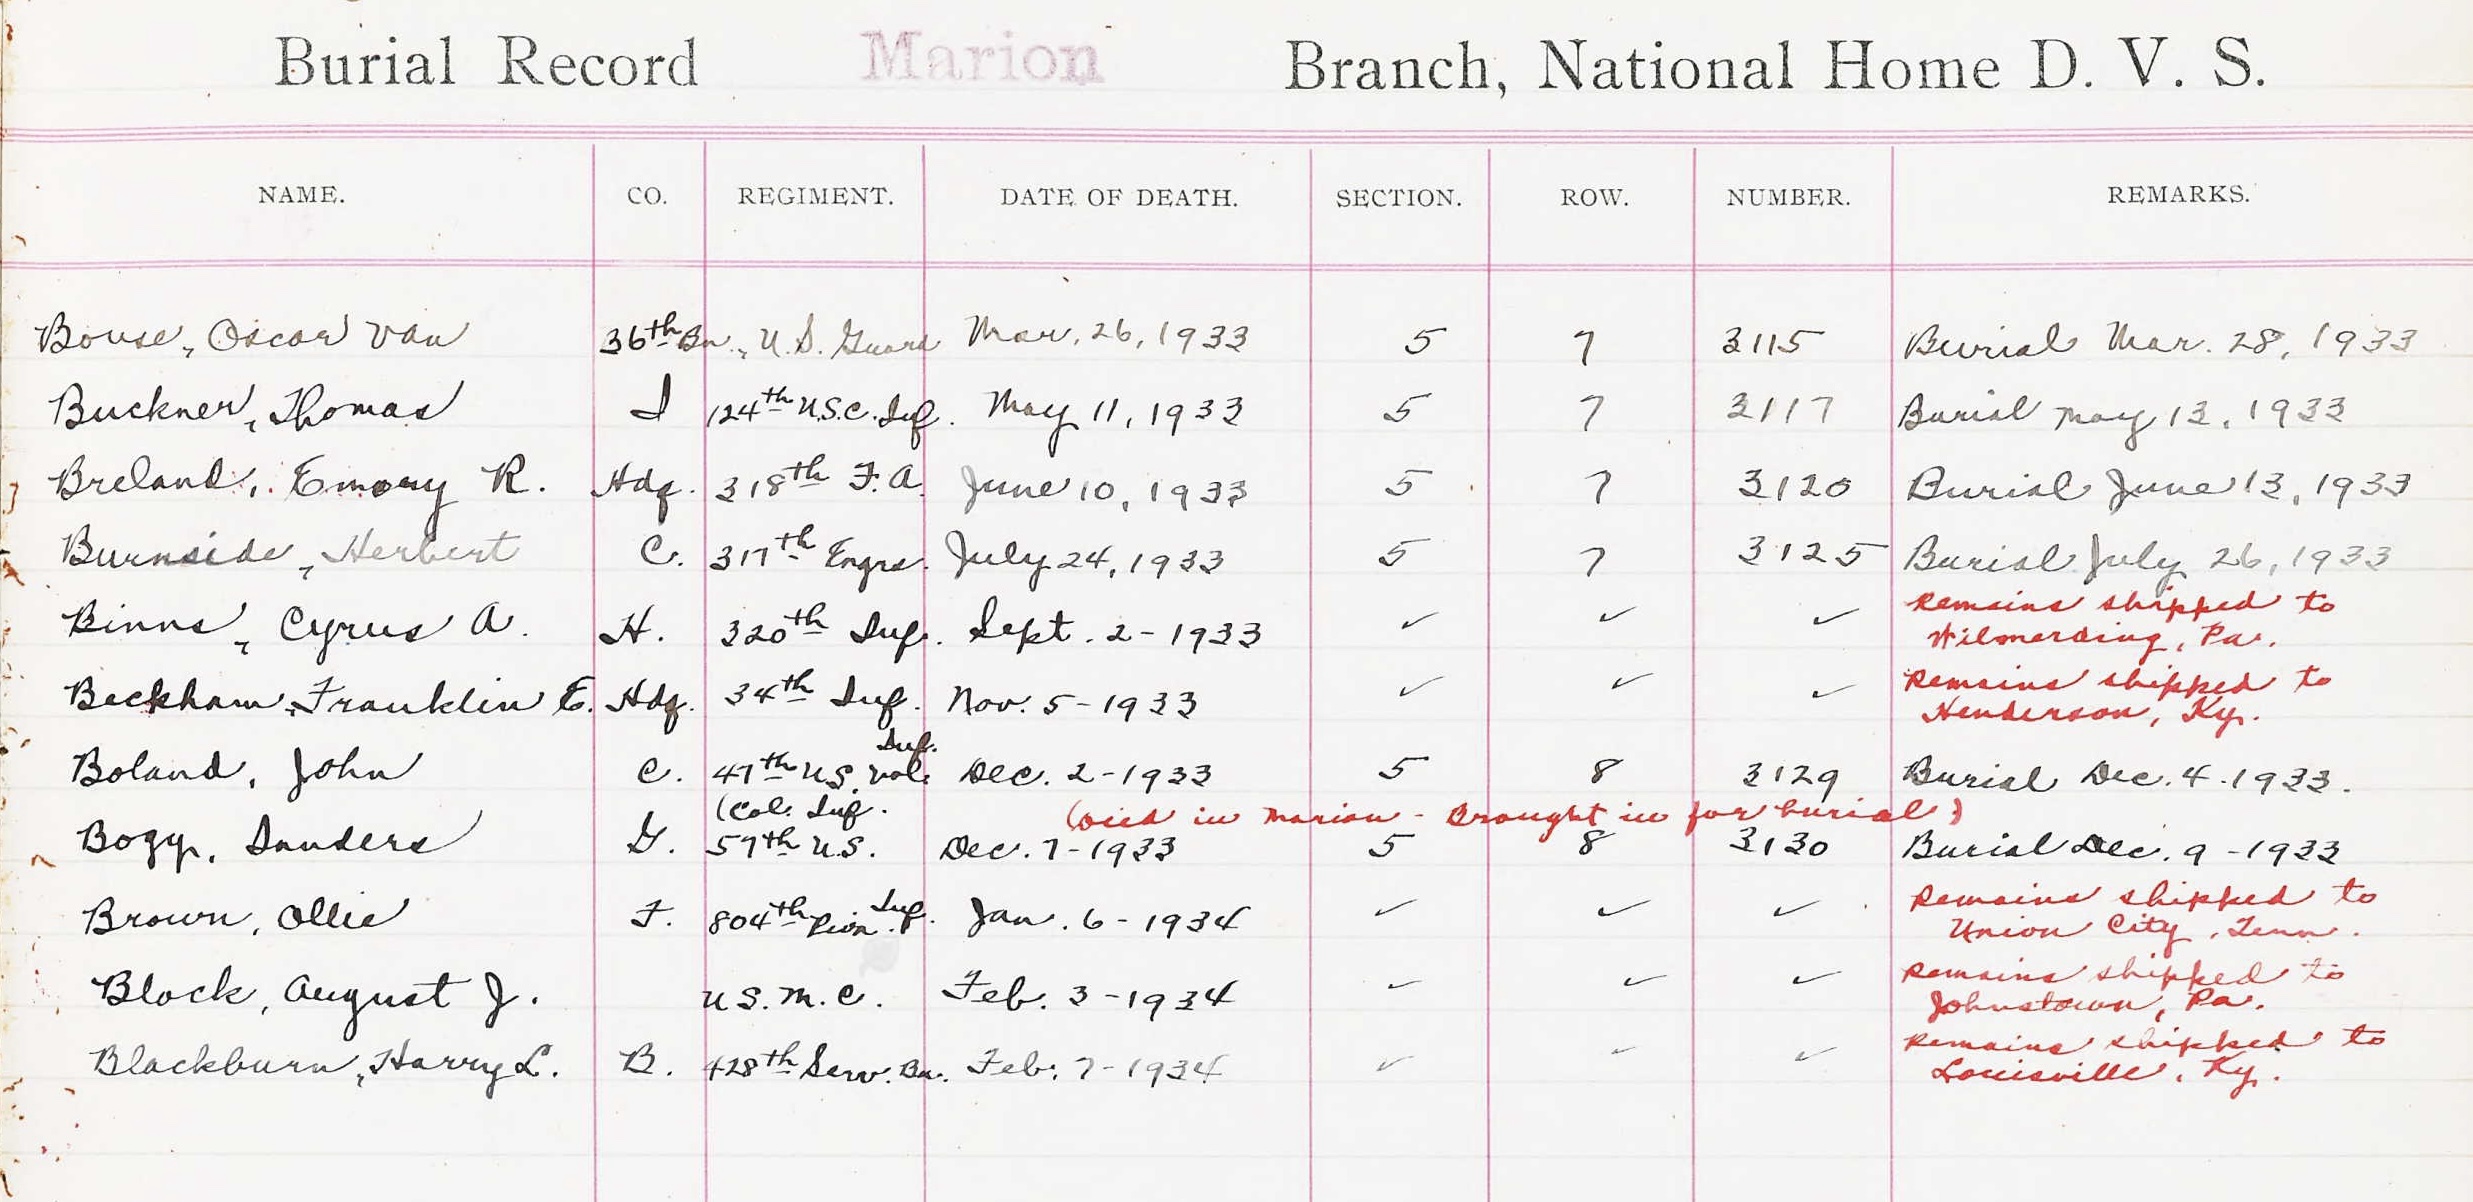 Burial Record Marion Branch, National Home D. V. S.
NAME. CO. REGIMENT. DATE OF DEATH. SECTION. ROW. NUMBER. REMARKS.
Bouse, Oscar Van 36th Bn., U.S. Guard Mar. 26, 1933 5 7 3115 Burial Mar. 28, 1933
Buckner, Thomas I 124th U.S.C. Inf. May 11, 1933 5 7 3117 Burial May 13, 1933
Breland, Emory R. Hdq. 318th F.A. June 10, 1933 5 7 3120 Burial June 13, 1933
Burnside, Herbert C. 317th Engrs. July 24, 1933 5 7 3125 Burial July 26, 1933
Binns, Cyrus A. H. 320th Inf. Sept. 2-1933 ✓ ✓ ✓ Remains shipped to
Wilmerding, Pa.
Beckham, Franklin E. Hdq. 34th Inf. Nov. 5-1933 ✓ ✓ ✓ Remains shipped to
Henderson, Ky.
Inf.
Boland, John C. 47th U.S. Vol. Dec. 2-1933 5 8 3129 Burial Dec. 4-1933.
(Col. Inf. (Died in Marion - Brought in for burial)
Bogy, Sanders G. 57th U.S. Dec. 7-1933 5 8 3130 Burial Dec. 9-1933
Inf. Remains shipped to
Brown, Ollie F. 804th Pion. Jan. 6-1934 ✓ ✓ ✓ Union City, Tenn.
Remains shipped to
Block, August J. U.S.M.C. Feb. 3-1934 ✓ ✓ ✓ Johnstown, Pa.
Remains shipped to
Blackburn, Harry L. B. 428th Serv. Bn. Feb. 7-1934 ✓ ✓ ✓ Louisville, Ky.